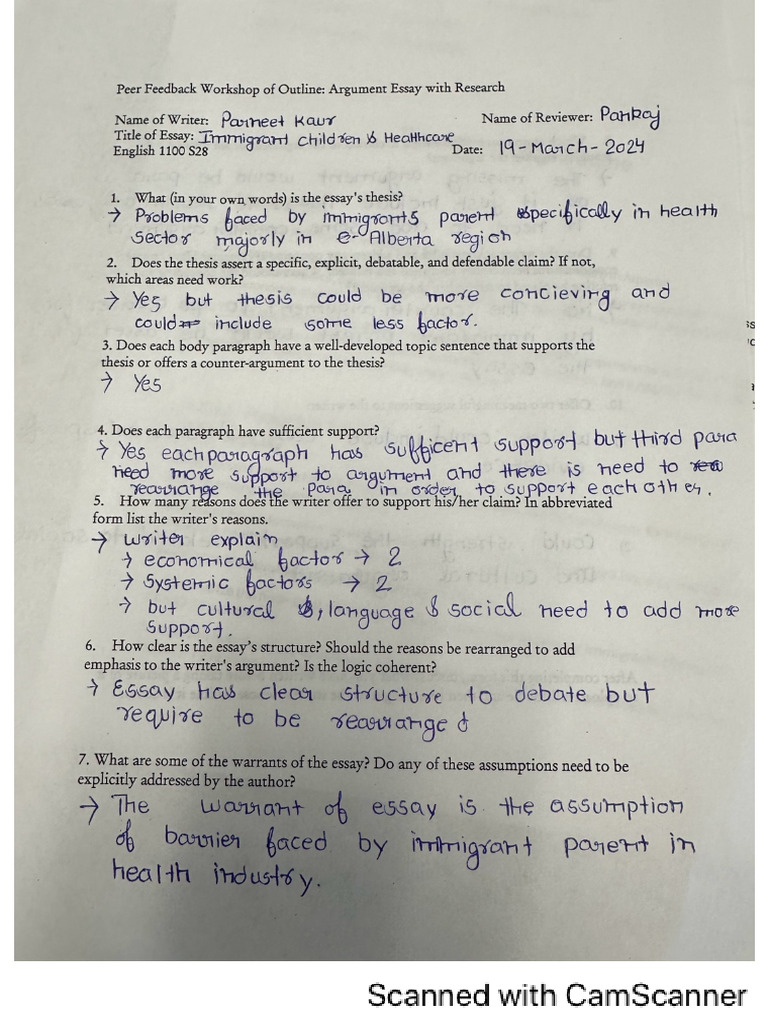 Peer Feedback Workshop of Outline: Argument Essay with Research
Name of Writer: Parneet Kaur Name of Reviewer: Pankaj
Title of Essay: Immigrant children & Healthcare
English 1100 S28 Date: 19-March-2024
1. What (in your own words) is the essay's thesis?
→ Problems faced by immigrants parent specifically in health
sector majorly in Alberta region
2. Does the thesis assert a specific, explicit, debatable, and defendable claim? If not,
which areas need work?
→ Yes but thesis could be more concieving and
could include some less factor.
3. Does each body paragraph have a well-developed topic sentence that supports the
thesis or offers a counter-argument to the thesis?
→ Yes
4. Does each paragraph have sufficient support?
→ Yes each paragraph has sufficent support but third para
need more support to argument and there is need to
rearrange the para in order to support each other.
5. How many reasons does the writer offer to support his/her claim? In abbreviated
form list the writer's reasons.
→ writer explain
→ economical factor → 2
→ Systemic factors → 2
→ but cultural , language & social need to add more
support.
6. How clear is the essay's structure? Should the reasons be rearranged to add
emphasis to the writer's argument? Is the logic coherent?
→ Essay has clear structure to debate but
require to be rearranged
7. What are some of the warrants of the essay? Do any of these assumptions need to be
explicitly addressed by the author?
→ The warrant of essay is the assumption
of barrier faced by immigrant parent in
health industry.
Scanned with CamScanner